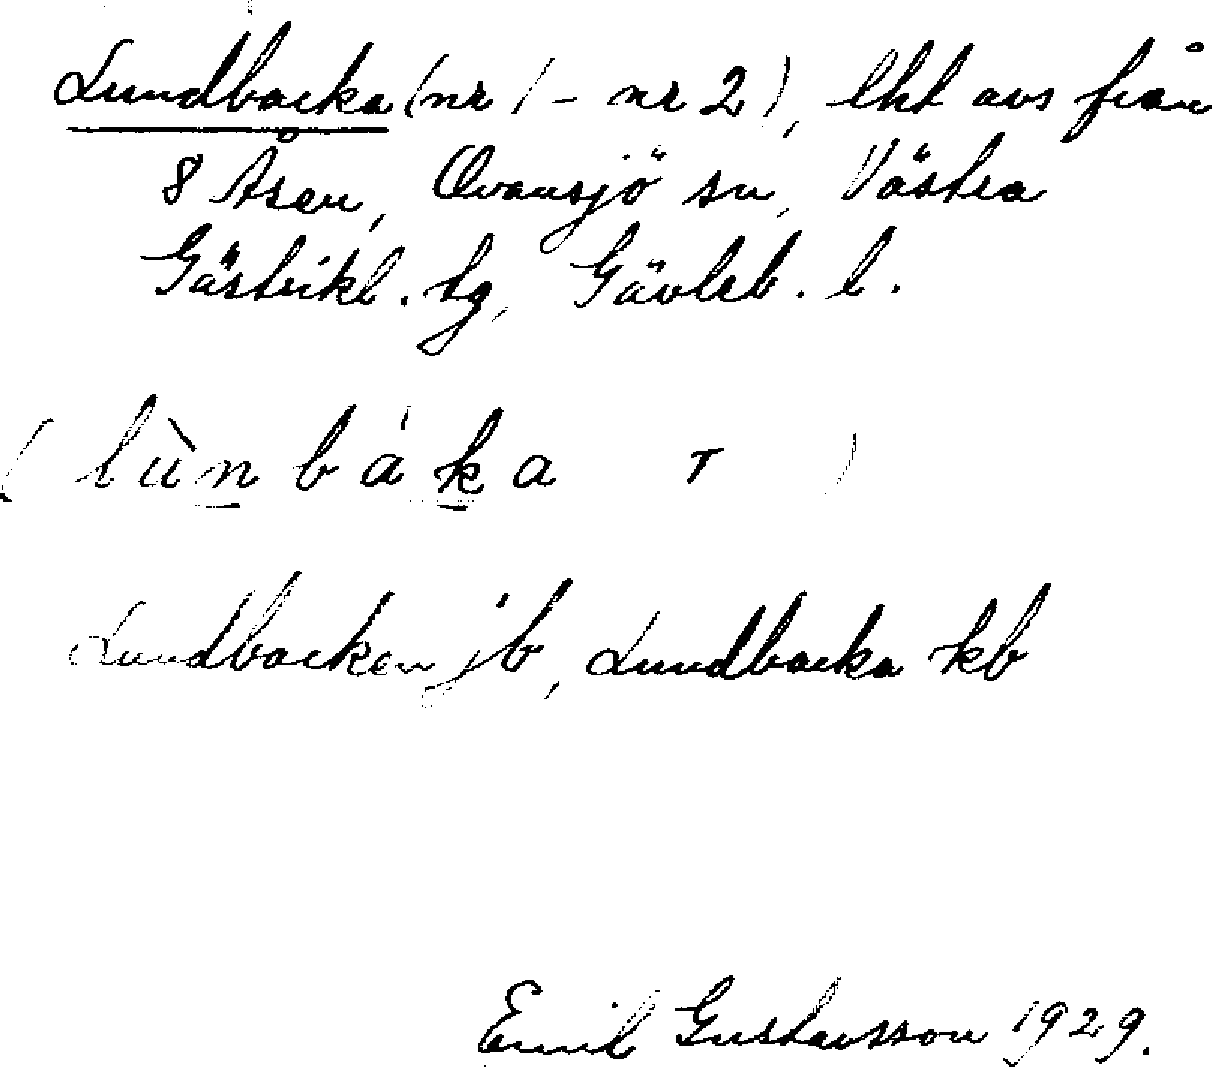 Lundbacka (nr 1 - nr 2), lht avs från
8 Åsen, Ovansjö sn, Västra
Gästrikl. tg, Gävleb. l.
(lùn báka r)
Lundbacken jb, Lundbacka kb
Emil Gustavsson 1929.